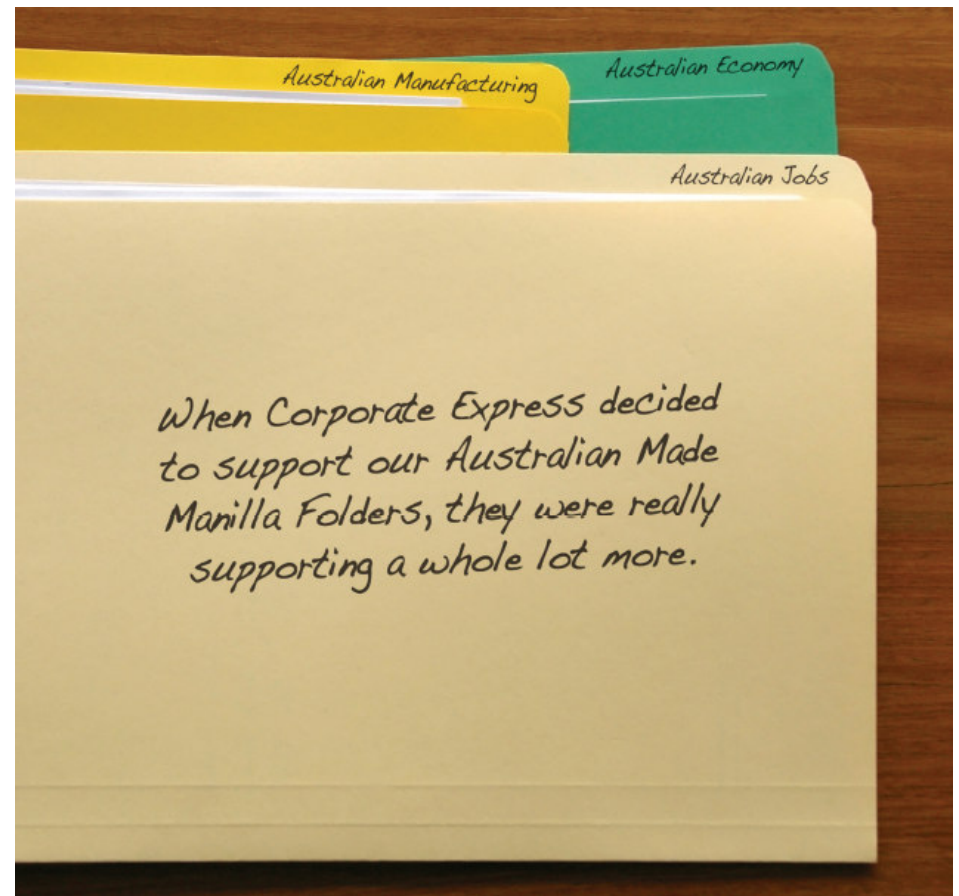 Australian Economy
Australian Manufacturing
Australian Jobs
When Corporate Express decided
to support our Australian Made
Manilla Folders, they were really
supporting a whole lot more.